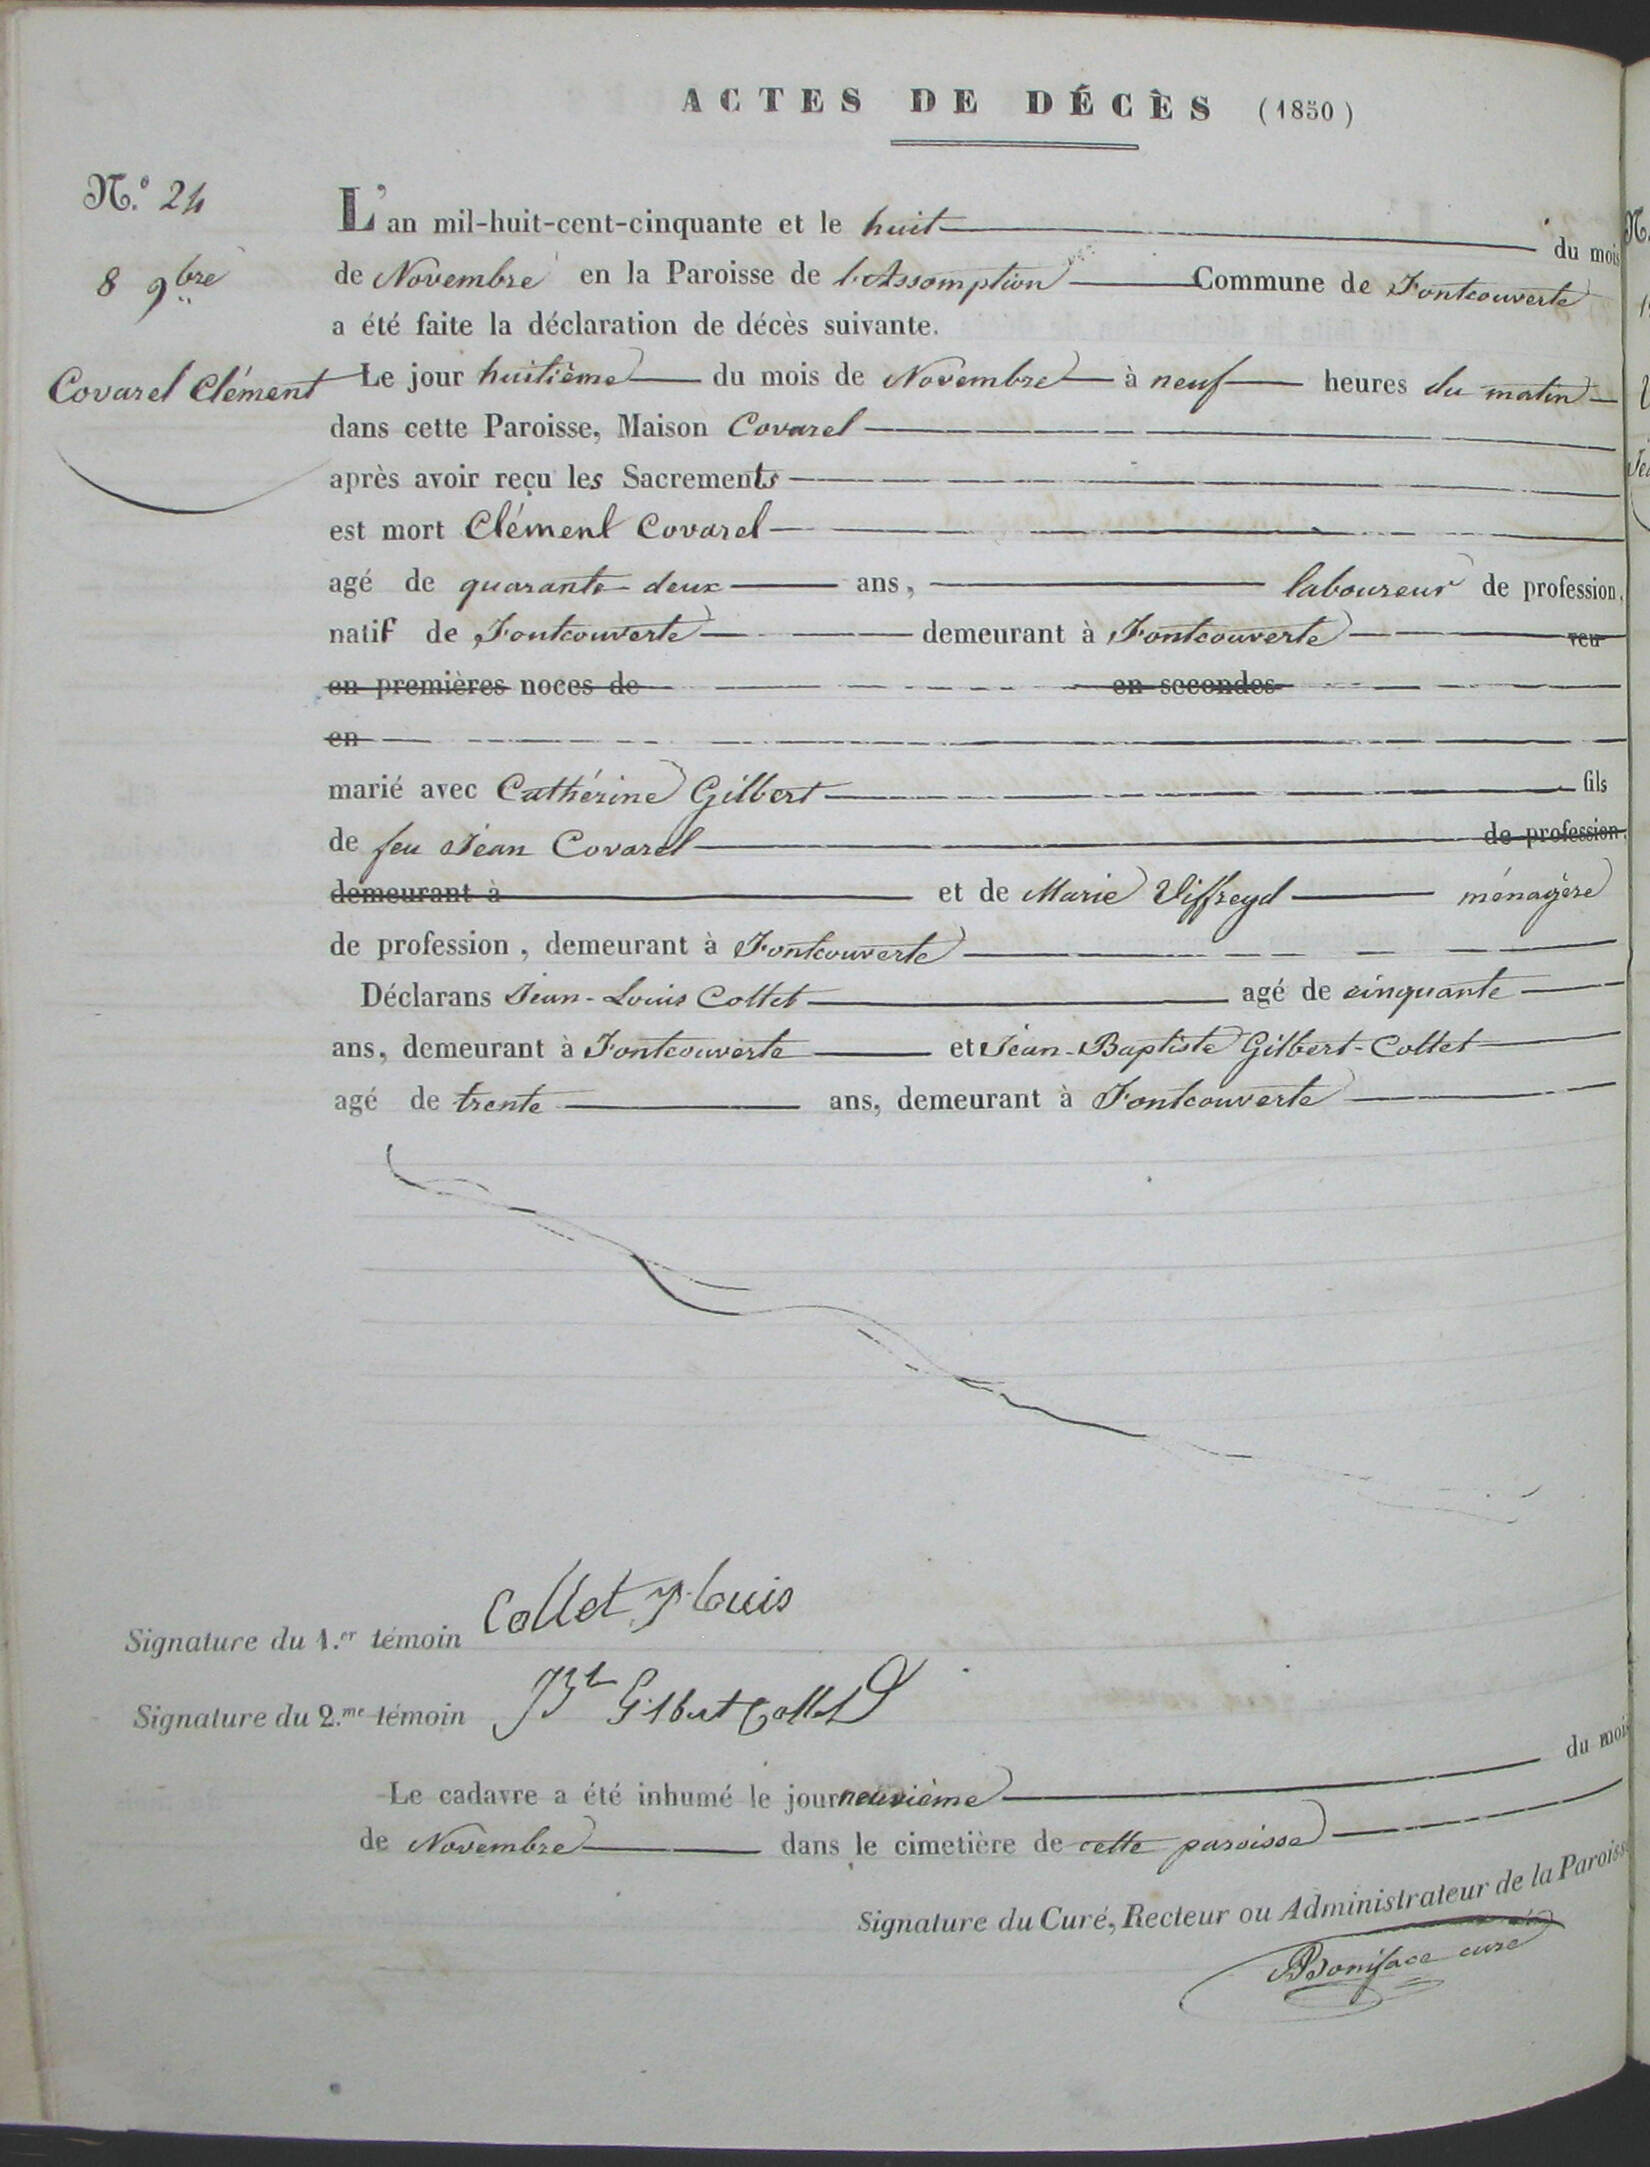 ACTES DE DÉCÈS (1850)
N.º 24
L'an mil-huit-cent-cinquante et le huit du mois
8 9bre
de Novembre en la Paroisse de l'Assomption Commune de Fontcouverte
a été faite la déclaration de décès suivante.
Covarel Clément
Le jour huitième du mois de Novembre à neuf heures du matin
dans cette Paroisse, Maison Covarel
après avoir reçu les Sacrements
est mort Clément Covarel
agé de quarante-deux ans, laboureur de profession,
natif de Fontcouverte demeurant à Fontcouverte veu
en premières noces de en secondes
en
marié avec Cathérine Gilbert fils
de feu Jean Covarel de profession.
demeurant à et de Marie Viffreyd ménagère
de profession, demeurant à Fontcouverte
Déclarans Jean-Louis Collet agé de cinquante
ans, demeurant à Fontcouverte et Jean-Baptiste Gilbert-Collet
agé de trente ans, demeurant à Fontcouverte
Signature du 1.er témoin Collet J Louis
Signature du 2.me témoin J Bt Gilbert Collet
Le cadavre a été inhumé le jour neuvième du mois
de Novembre dans le cimetière de cette paroisse
Signature du Curé, Recteur ou Administrateur de la Paroisse
Boniface curé